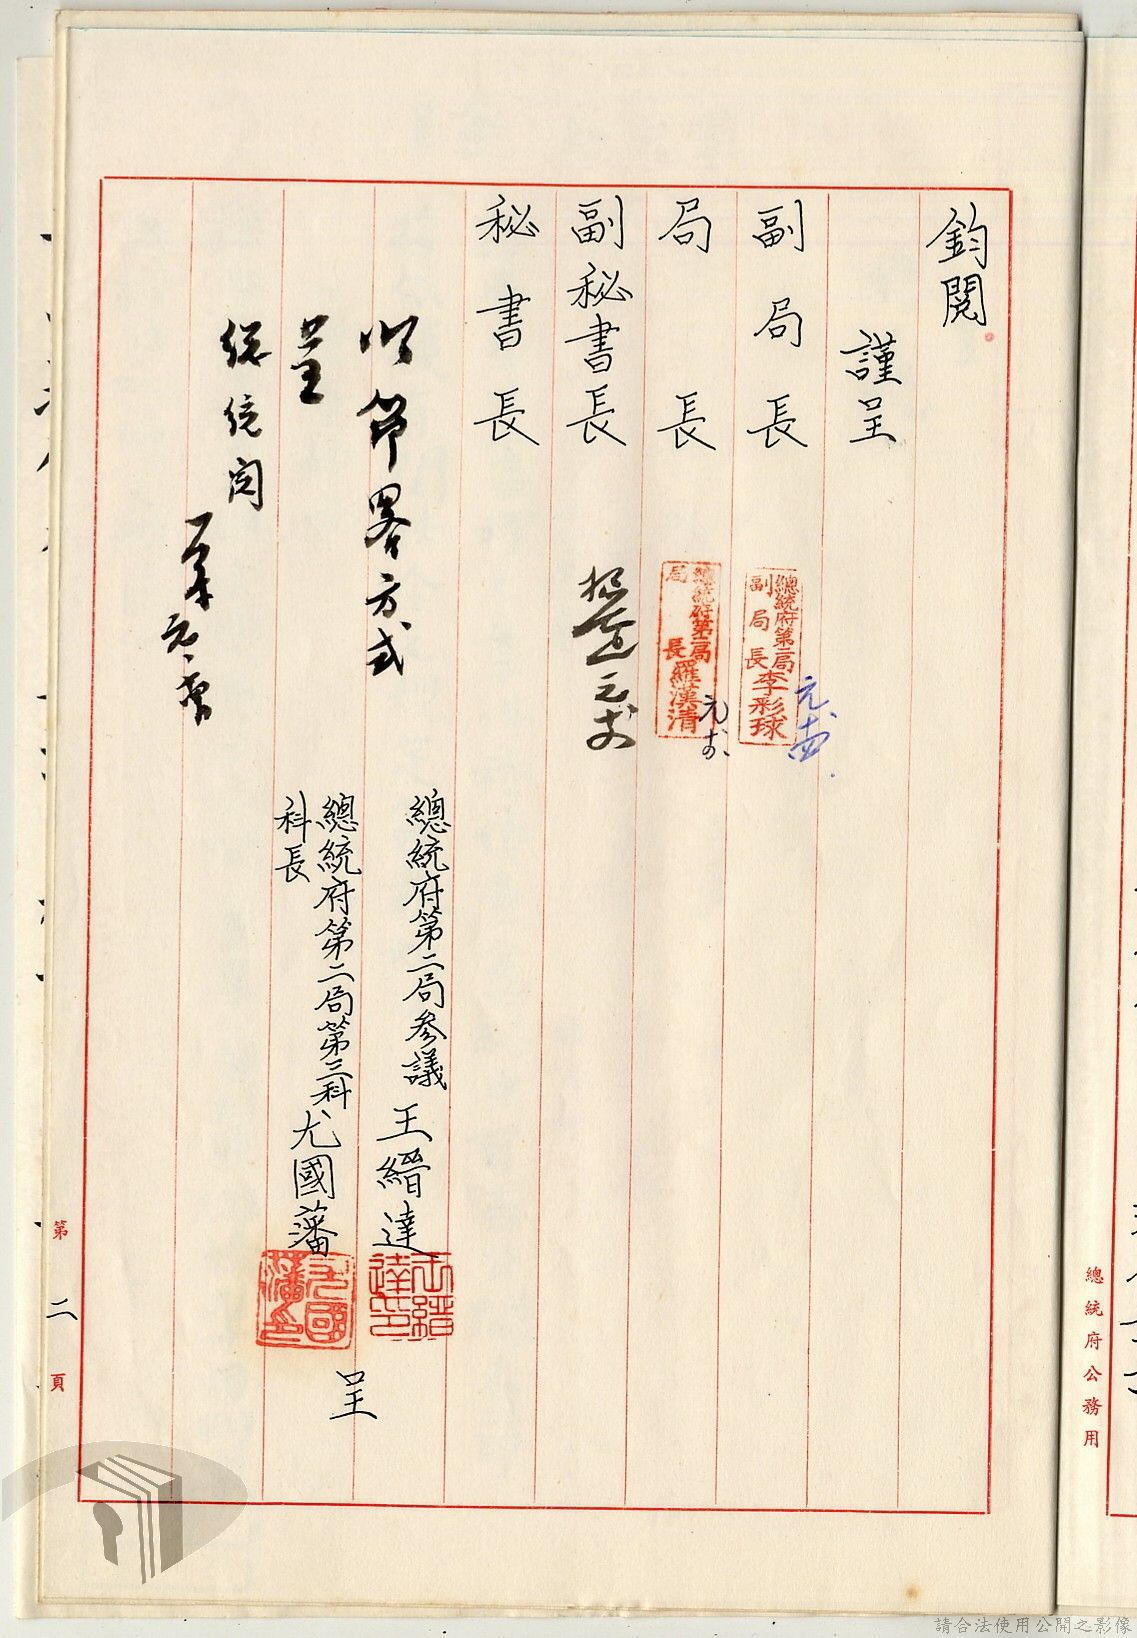 鈞閱。
謹呈
副局長
總統府第二局
副局長李彩球
元、十四.
局長
總統府第二局
局長羅漢清
元、
副秘書長
元
秘書長
以節畧方式
呈
總統閱
元、
總統府第二局參議王縉達
王縉達印
總統府第二局第三科
科長尤國藩
尤國藩印
呈
第二頁
總統府公務用
請合法使用公開之影像